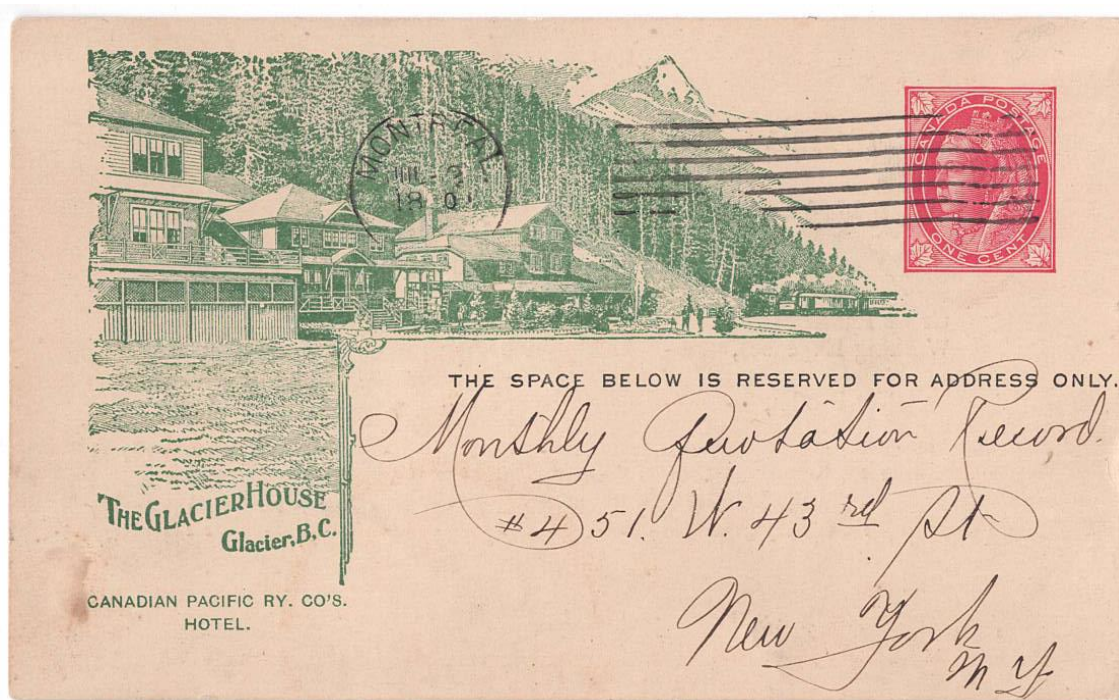 MONTREAL
JUL 3
18 0
CANADA POSTAGE
ONE CENT
THE SPACE BELOW IS RESERVED FOR ADDRESS ONLY.
Monthly Quotation Record.
#451. W. 43rd St
New York
N Y.
THE GLACIER HOUSE
Glacier, B.C.
CANADIAN PACIFIC RY. CO'S.
HOTEL.